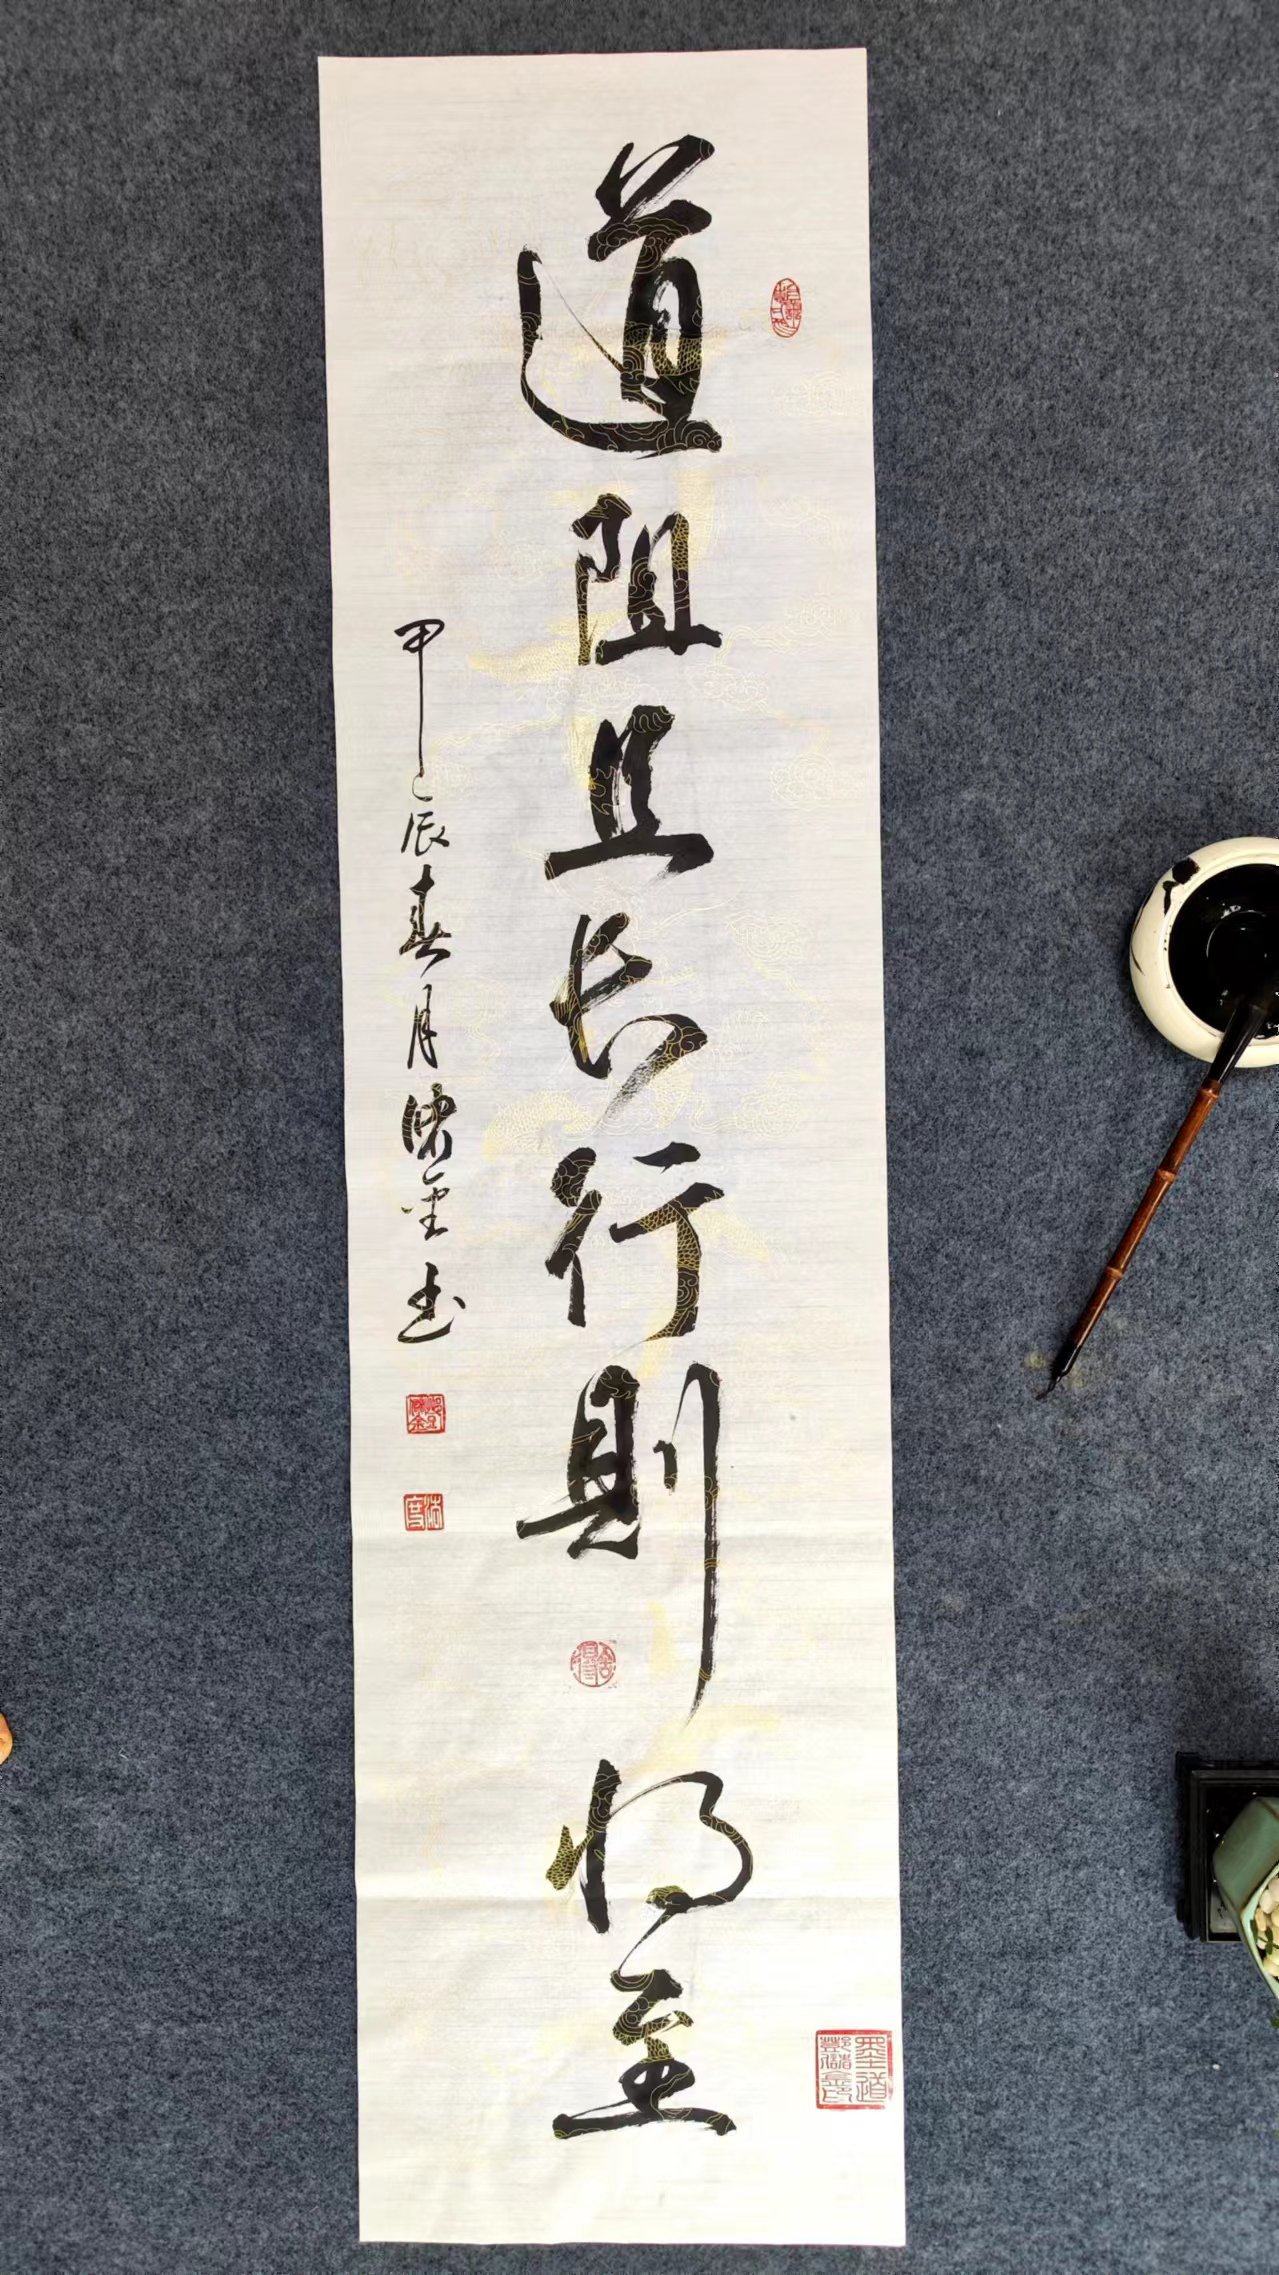 道阻且长行則将至
甲辰春月
书
墨道